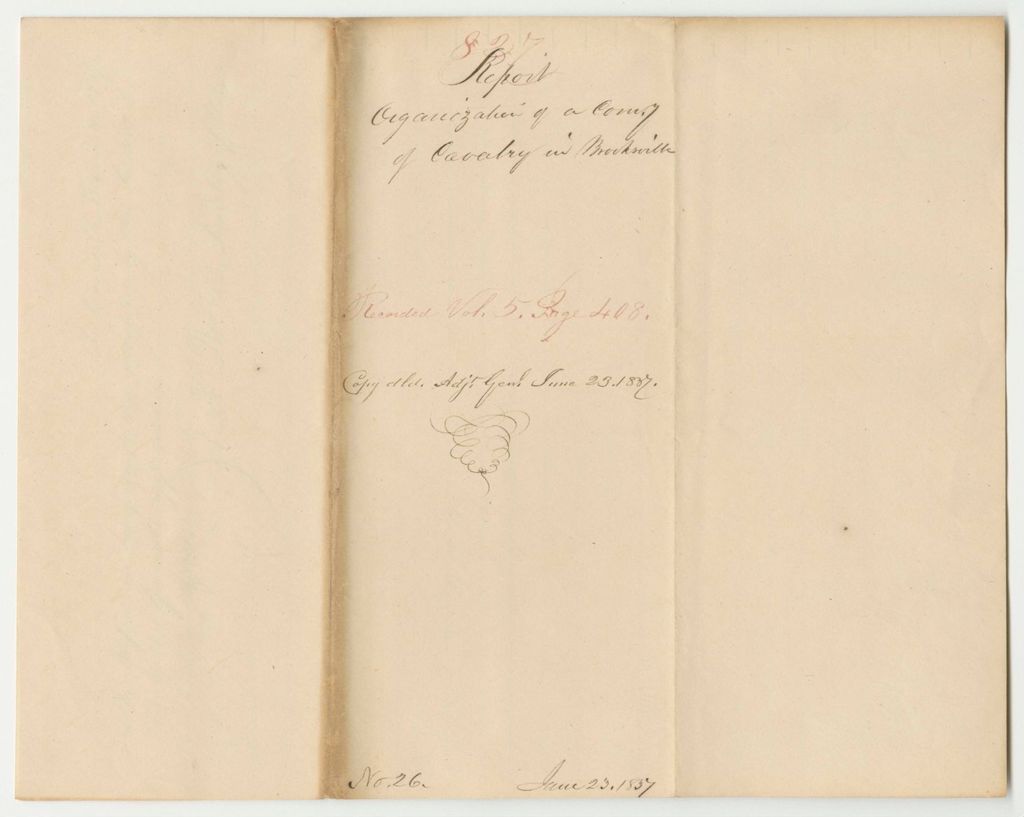 827
Report
Organization of a Comy
of Cavalry in Brooksville
Recorded Vol. 5. Page 408.
Copy dld. Adjt Genl. June 23. 1837.
No. 26. June 23. 1837